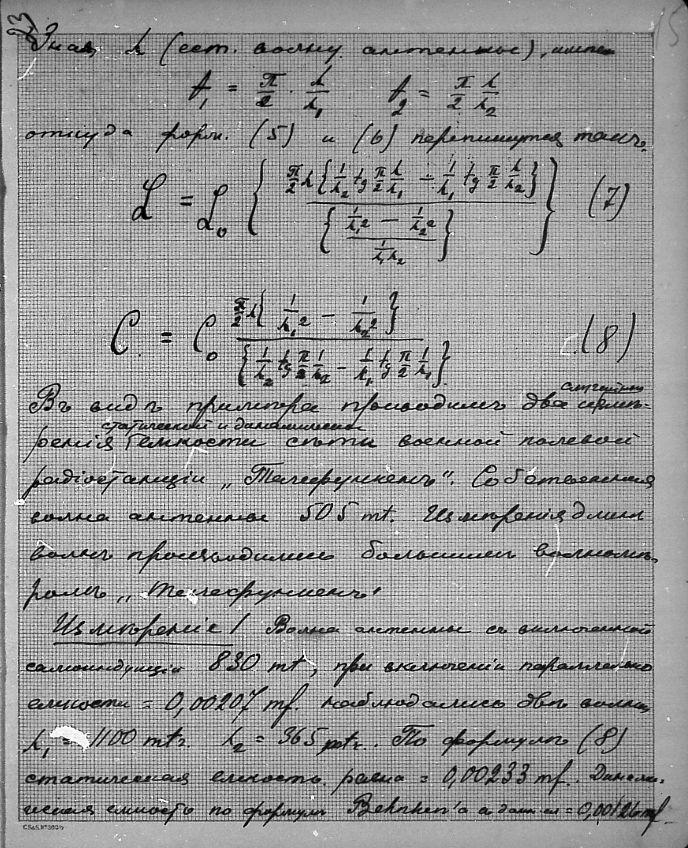 23
15
Зная λ (ест. волну антенны), имеем
t₁ = π/2 · λ/λ₁   t₂ = π/2 λ/λ₂
откуда форм. (5) и (6) перепишутся такъ:
L = L₀ { π/2 λ { 1/λ₂ tg π/2 λ/λ₁ − 1/λ₁ tg π/2 λ/λ₂ } / { (1/λ₁² − 1/λ₂²) / λ₁λ₂ } }   (7)
C = C₀ π/2 λ { 1/λ₁² − 1/λ₂² } / { 1/λ₂ tg π/2 1/λ₂ − 1/λ₁ tg π/2 1/λ₁ }   (8)
Въ видѣ примѣра приводимъ два измѣ-
статической и динамической
ренія емкости сѣти военной полевой
радіостанціи „Телефункенъ“. Собственная
волна антенны 505 mt. Измѣренія длин
волнъ производились большимъ волномѣ-
ромъ „Телефункенъ“
Измѣреніе I Волна антенны съ включенной
самоиндукціей 830 mt, при включеніи параллельно
емкости = 0,00207 mf. наблюдались двѣ волны
λ₁ = 1100 mtr. λ₂ = 365 mtr. По формулѣ (8)
статическая емкость равна = 0,00233 mf. Динами-
ческая емкость по формулѣ Behnken'а = 0,00126 mf.